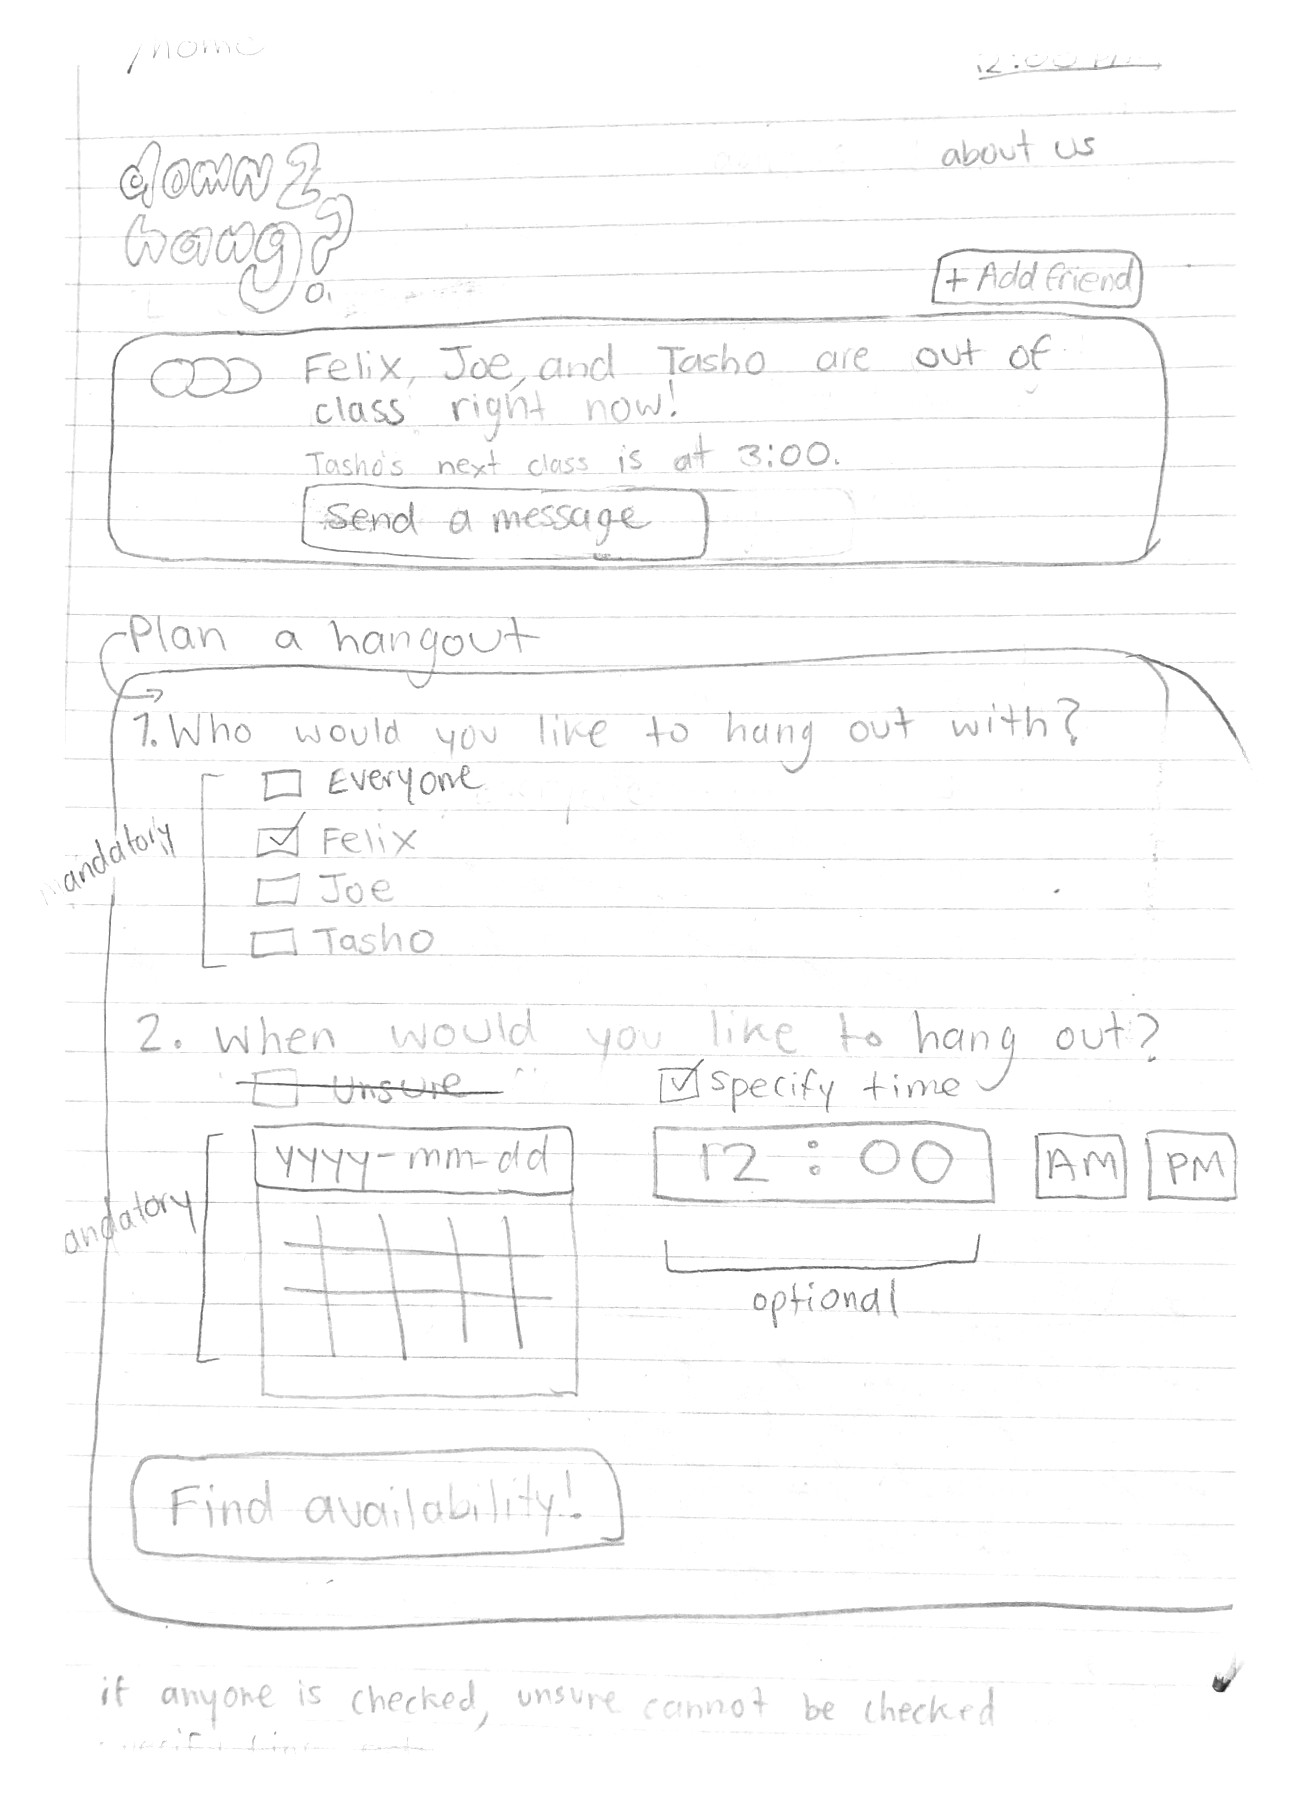 /home
12:00 PM
about us
down 2
hang?
+ Add friend
Felix, Joe, and Tasho are out of
class right now!
Tasho's next class is at 3:00.
Send a message
Plan a hangout
1. Who would you like to hang out with?
Everyone
mandatory
Felix
Joe
Tasho
2. When would you like to hang out?
Unsure
Specify time
yyyy-mm-dd
12:00
AM
PM
andatory
optional
Find availability!
if anyone is checked, unsure cannot be checked